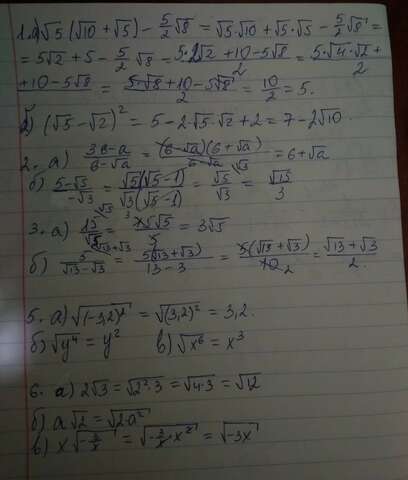 1. а) √5 (√10 + √5) − 5/2 √8 = √5·√10 + √5·√5 − 5/2 √8 =
= 5√2 + 5 − 5/2 √8 = (5·2√2 + 10 − 5√8)/2 = (5·√4·√2 +
+ 10 − 5√8)/2 = (5·√8 + 10 − 5√8)/2 = 10/2 = 5.
б) (√5 − √2)² = 5 − 2√5·√2 + 2 = 7 − 2√10.
2. а) (36 − a)/(6 − √a) = (6 − √a)(6 + √a)/(6 − √a) = 6 + √a
б) (5 − √5)/(√15 − √3) = √5(√5 − 1)/(√3(√5 − 1)) = √5/√3 = √15/3
3. а) 15/√5 = 15√5/5 = 3√5
б) 5/(√13 − √3) = 5(√13 + √3)/(13 − 3) = 5(√13 + √3)/10 = (√13 + √3)/2.
5. а) √(−3,2)² = √(3,2)² = 3,2.
б) √y⁴ = y² в) √x⁶ = x³
6. а) 2√3 = √2²·3 = √4·3 = √12
б) a√2 = √2·a²
в) x√−3/x = √−3/x·x² = √−3x